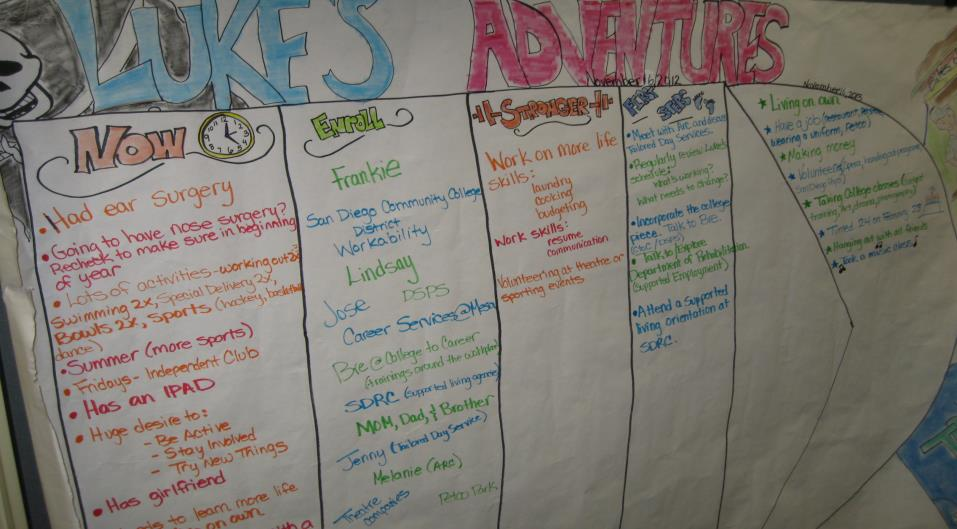 LUKE'S ADVENTURES
NOW
• Had ear surgery
• Going to have nose surgery?
Recheck to make sure in beginning
of year
• Lots of activities - working out 2x
Swimming 2x, Special Delivery 2x,
Bowls 2x, Sports (hockey, basketball
dance)
• Summer (more sports)
• Fridays - Independent Club
• Has an IPAD
• Huge desire to:
- Be Active
- Stay Involved
- Try New Things
• Has girlfriend
to learn more life
on own
with a
Enroll
Frankie
San Diego Community College
District
Workability
Lindsay
DSPS
Jose
Career Services @ Mesa
Bre @ College to Career
(trainings around the workplace)
SDRC (supported living agencies)
MOM, Dad, & Brother
Jenny (Tailored Day Service)
Melanie (ARC)
Theatre
companies
Petco Park
Stronger
Work on more life
skills:
laundry
cooking
budgeting
Work skills:
resume
communication
Volunteering at theatre or
sporting events
November 16, 2012
First
Steps
• Meet with Arc and discuss
Tailored Day Services.
• Regularly review Luke's
schedule:
What's working?
What needs to change?
• Incorporate the college
piece. Talk to Bre.
• Talk to/Explore
Department of Rehabilitation
(Supported Employment)
• Attend a supported
living orientation at
SDRC.
November
★ Living on own
★ Have a job (restaurant,
wearing a uniform, Petco)
★ Making money
★ Volunteering
★ Taking College classes
training, Art, drama,
★ Turned 24 on
★ Hanging out with all friends
★ Took a music class